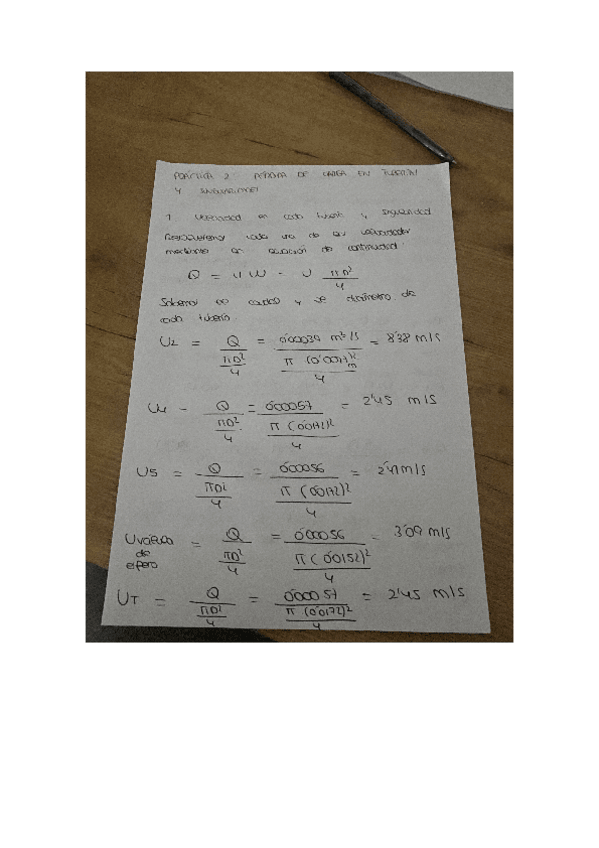 PRÁCTICA 2: PÉRDIDA DE CARGA EN TUBERÍAS
Y SINGULARIDADES
1. Velocidad en cada tubería y singularidad
cada una de las velocidades
mediante la ecuación de continuidad:
Q = U W = U πD²/4
Sabemos el caudal y el diámetro de
cada tubería.
U2 = Q / (πD²/4) = 0'00039 m³/s / = 8'38 m/s
= Q / (πD²/4) = 0'00057 / (π (0'0172)²/4) = 2'45 m/s
U5 = Q / (πD²/4) = 0'00056 / (π (0'0172)²/4) = 2'41 m/s
Uválvula de esfera = Q / (πD²/4) = 0'00056 / (π (0'0152)²/4) = 3'09 m/s
UT = Q / (πD²/4) = 0'00057 / (π (0'0172)²/4) = 2'45 m/s